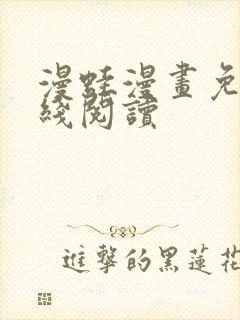 漫蛙漫畫免
綫閱讀
進擊的黑蓮花